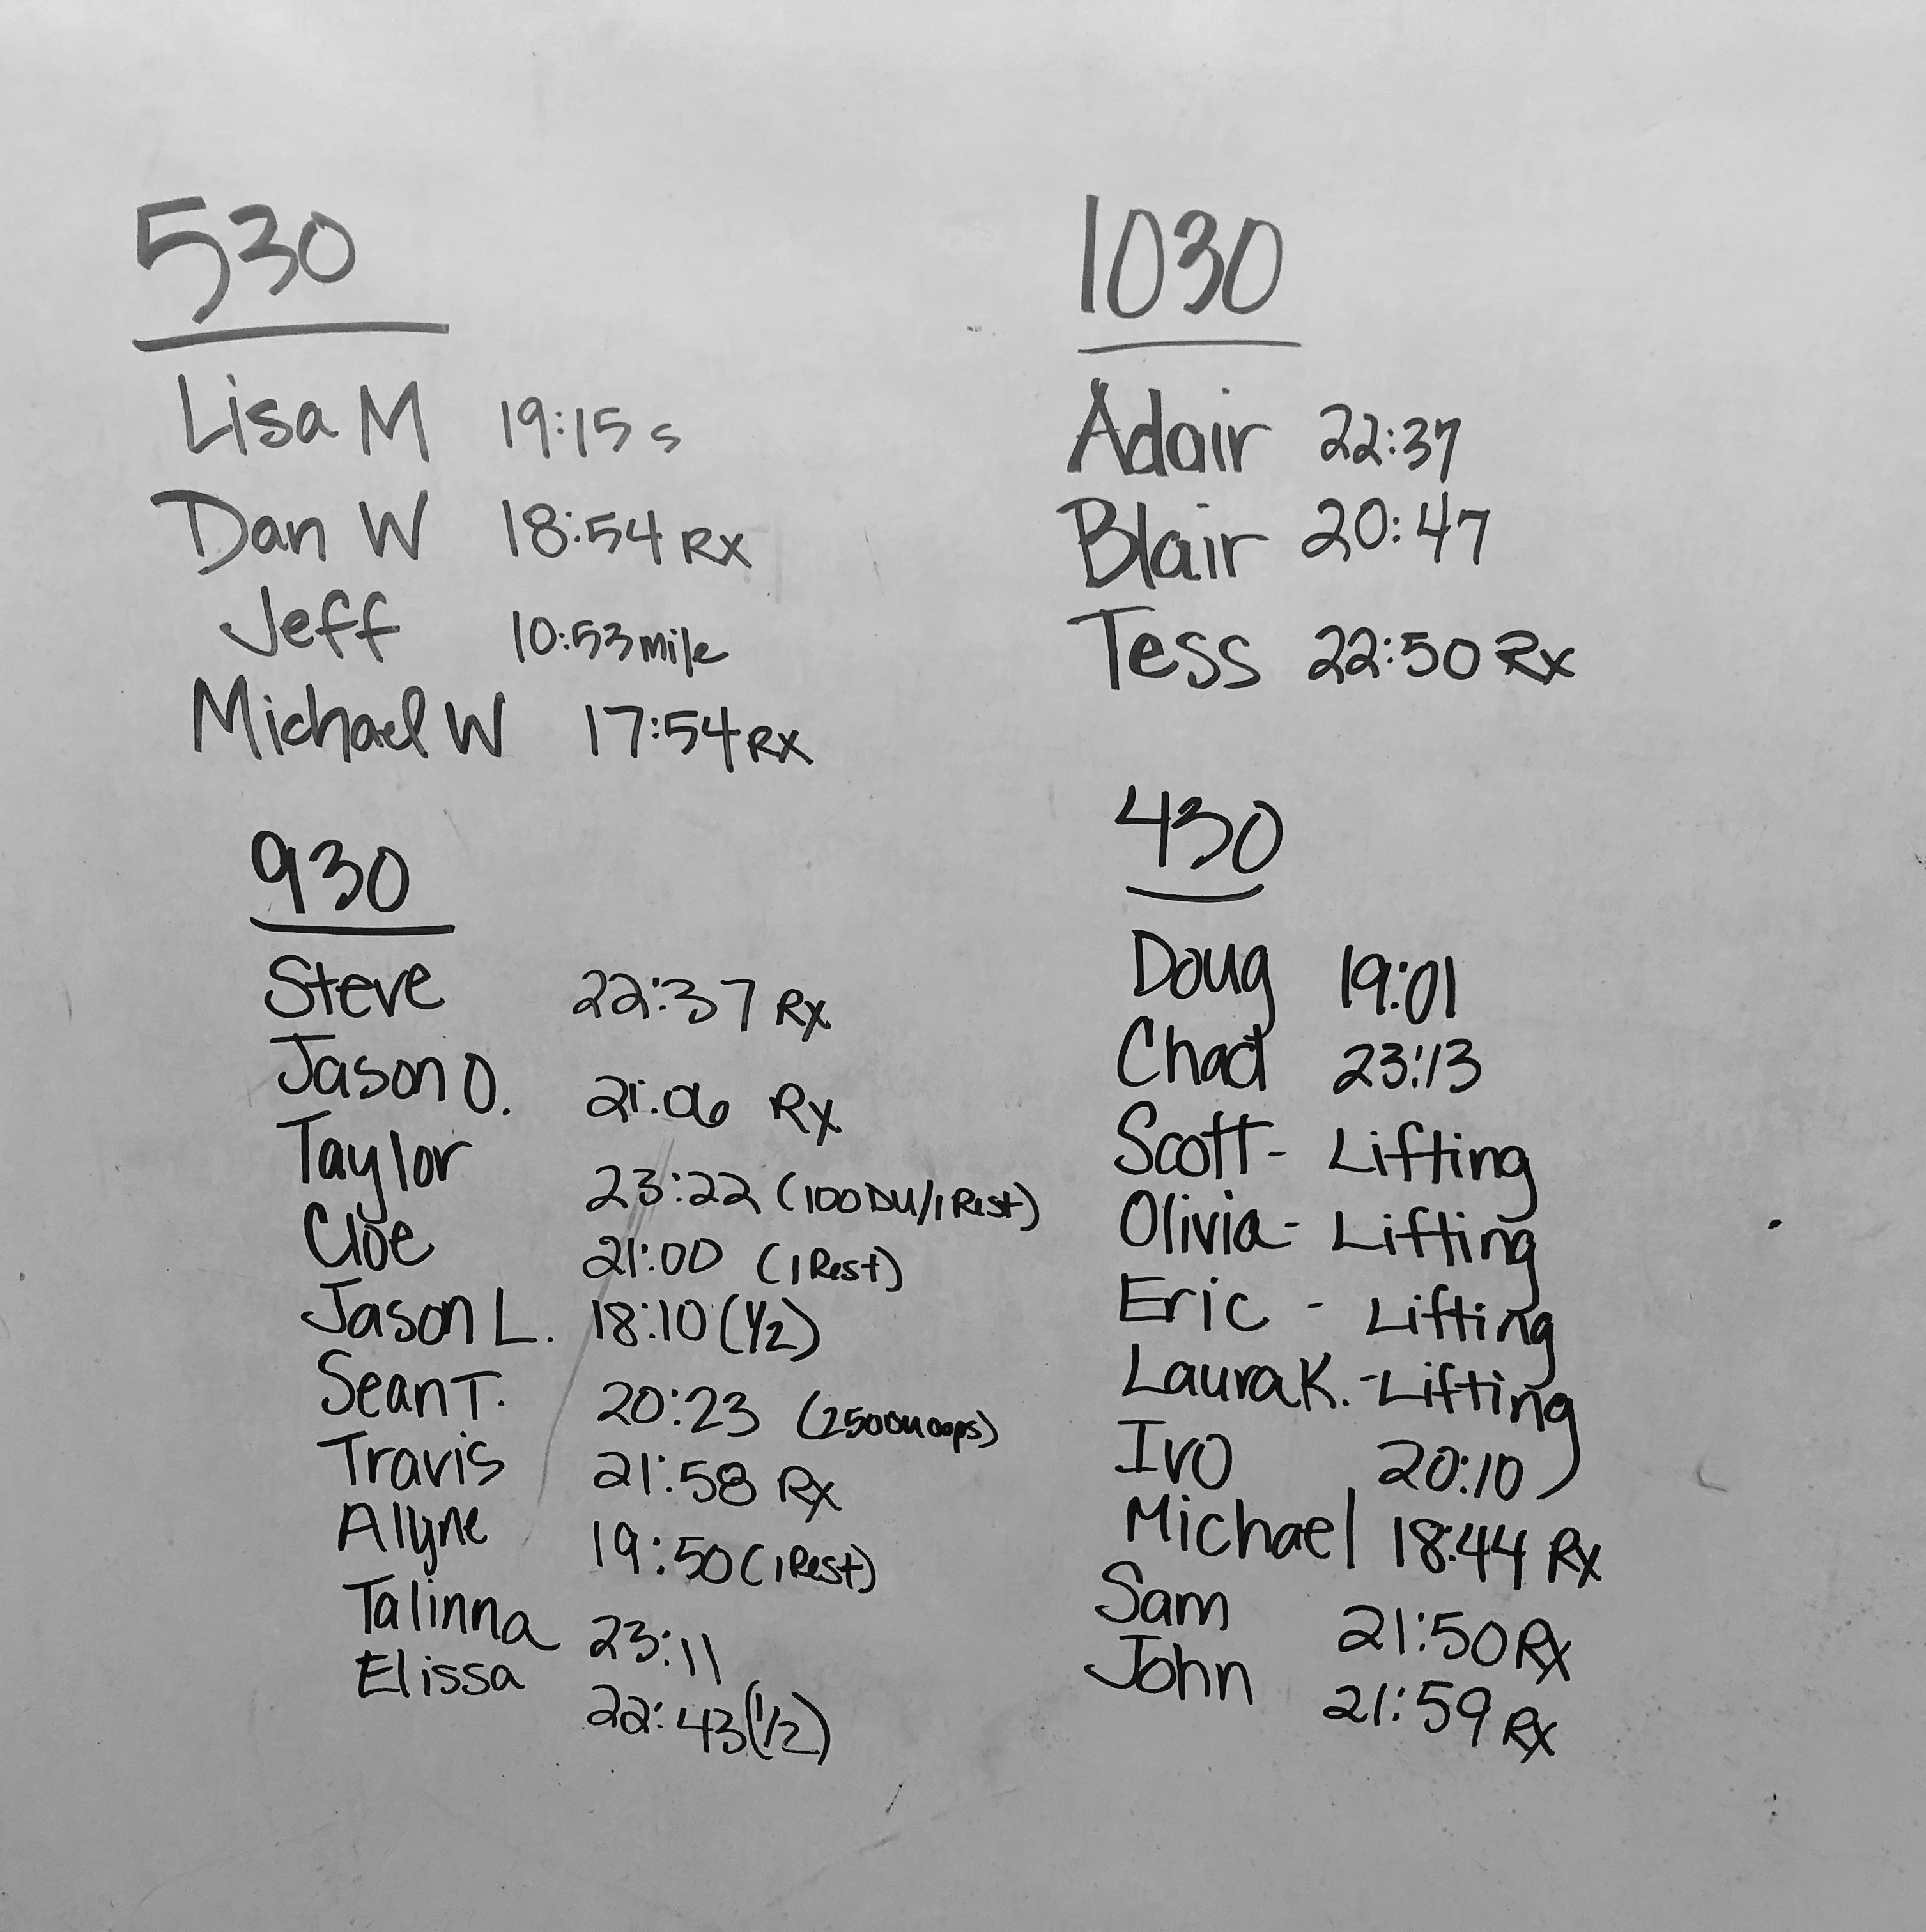 530
Lisa M 19:15 s
Dan W 18:54 Rx
Jeff 10:53 mile
Michael W 17:54 Rx
930
Steve 22:37 Rx
Jason O. 21:06 Rx
Taylor 23:22 (100 DU/1 Rest)
Cloe 21:00 (1 Rest)
Jason L. 18:10 (1/2)
Sean T. 20:23 (250 DU oops)
Travis 21:58 Rx
Allyne 19:50 (1 Rest)
Talinna 23:11
Elissa 22:43 (1/2)
1030
Adair 22:37
Blair 20:47
Tess 22:50 Rx
430
Doug 19:01
Chad 23:13
Scott - Lifting
Olivia - Lifting
Eric - Lifting
Laura K. - Lifting
Ivo 20:10
Michael 18:44 Rx
Sam 21:50 Rx
John 21:59 Rx